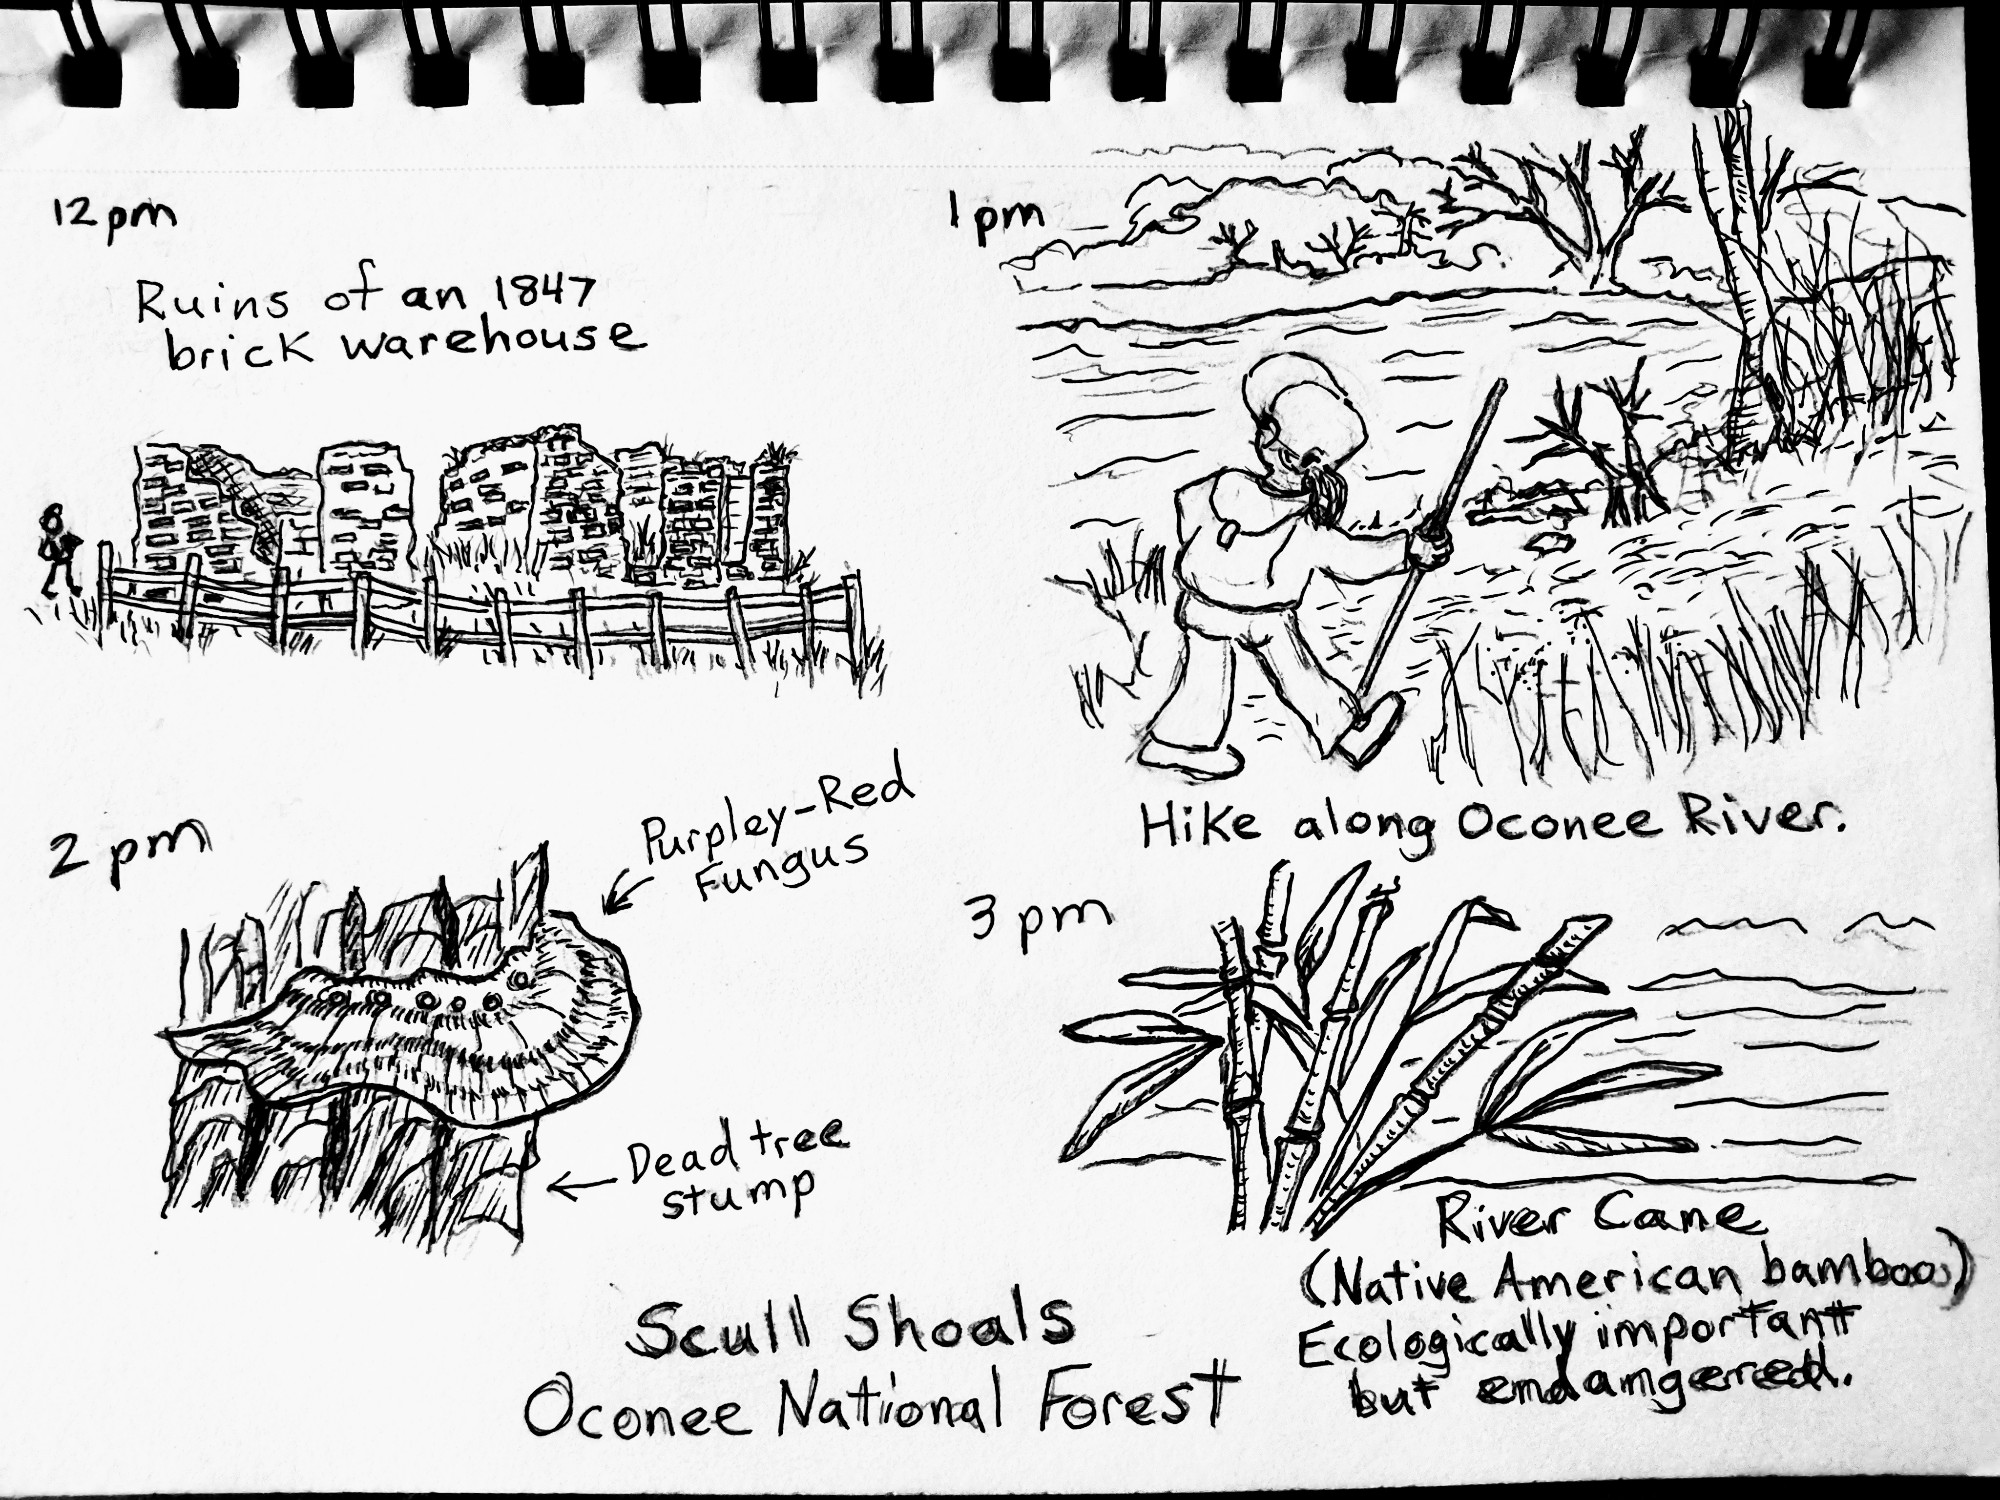 12 pm
Ruins of an 1847
brick warehouse
1 pm
Hike along Oconee River.
2 pm
Purpley-Red
Fungus
Dead tree
stump
3 pm
River Cane
(Native American bamboo)
Ecologically important
but endangered.
Scull Shoals
Oconee National Forest